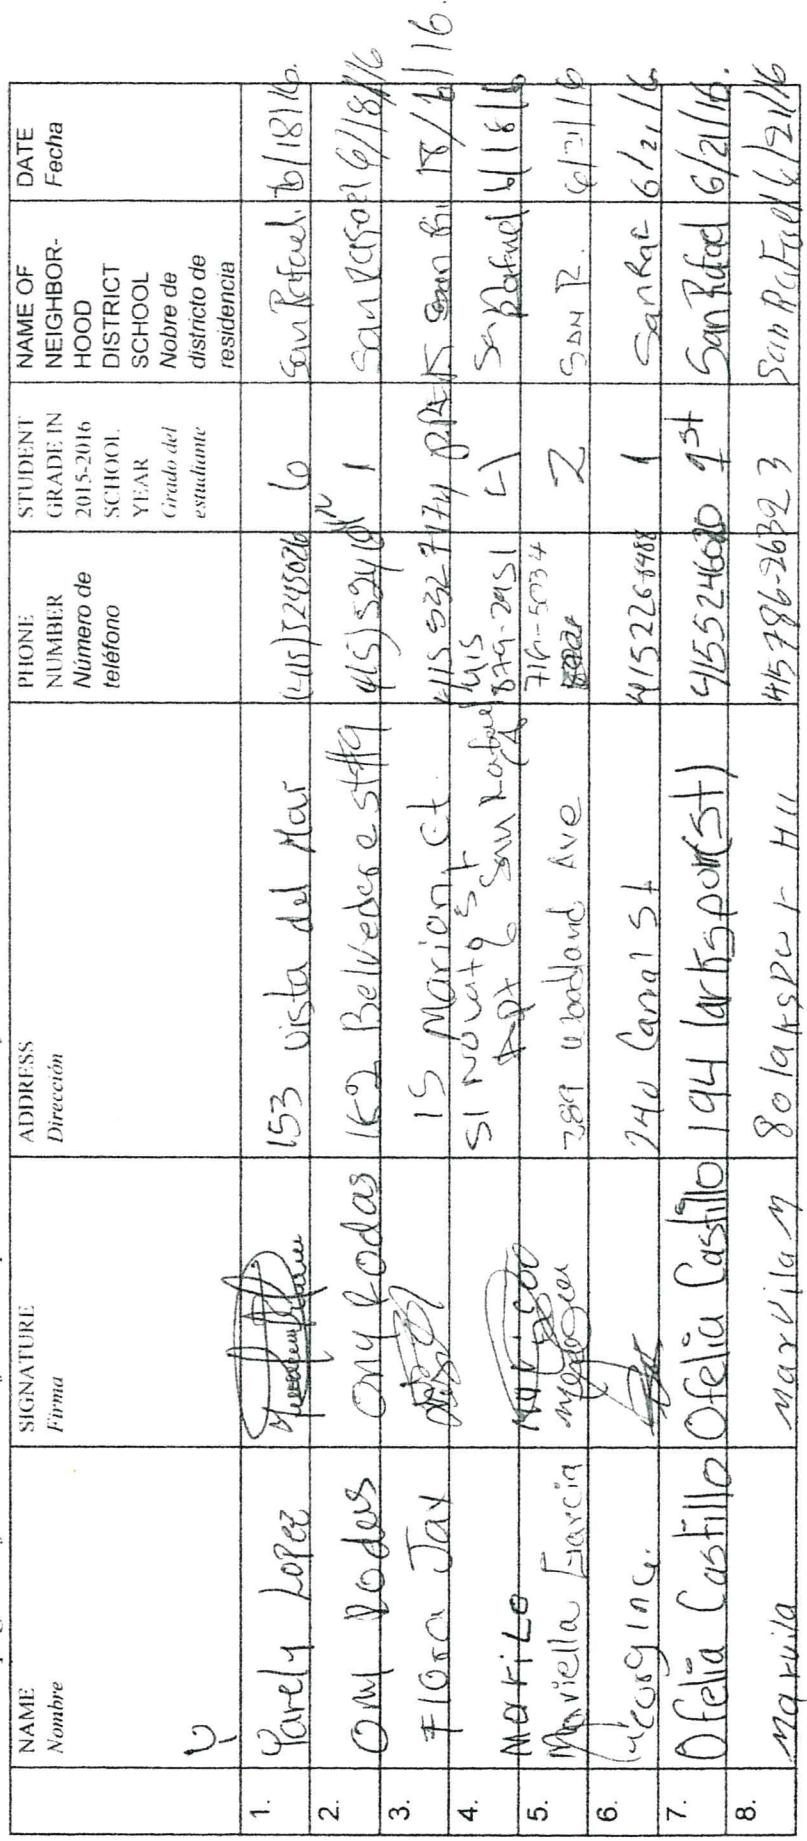 NAME
Nombre
SIGNATURE
Firma
ADDRESS
Dirección
PHONE
NUMBER
Número de
teléfono
STUDENT
GRADE IN
2015-2016
SCHOOL
YEAR
Grado del
estudiante
NAME OF
NEIGHBOR-
HOOD
DISTRICT
SCHOOL
Nobre de
districto de
residencia
DATE
Fecha
1. Yarely Lopez 153 Vista del Mar (415)5245026 6 San Rafael. 6/18/16.
2. Omy Rodas Omy Rodas 162 Belvedere st #9 (415) 524 1 San Rafael 6/18/16
3. Flora Jax 15 Marion Ct. 415 532 7174 PREK San 18/6/16.
4. Marilo 51 Novato St
Apt 6 San Rafael 415
879-2951 4 San Rafael 6/18/16
5. Mariella Garcia 289 Woodland Ave 716-5034 2 San R. 6/21/16
6. Georgina. 240 Canal St 4152268488 1 San Raf 6/21/16
7. Ofelia Castillo Ofelia Castillo 194 larkspur(St) 4155246080 1st San Rafael 6/21/16.
8. Marvila Marvila M 80 larkspur 415786-2632 3 San Rafael 6/21/16